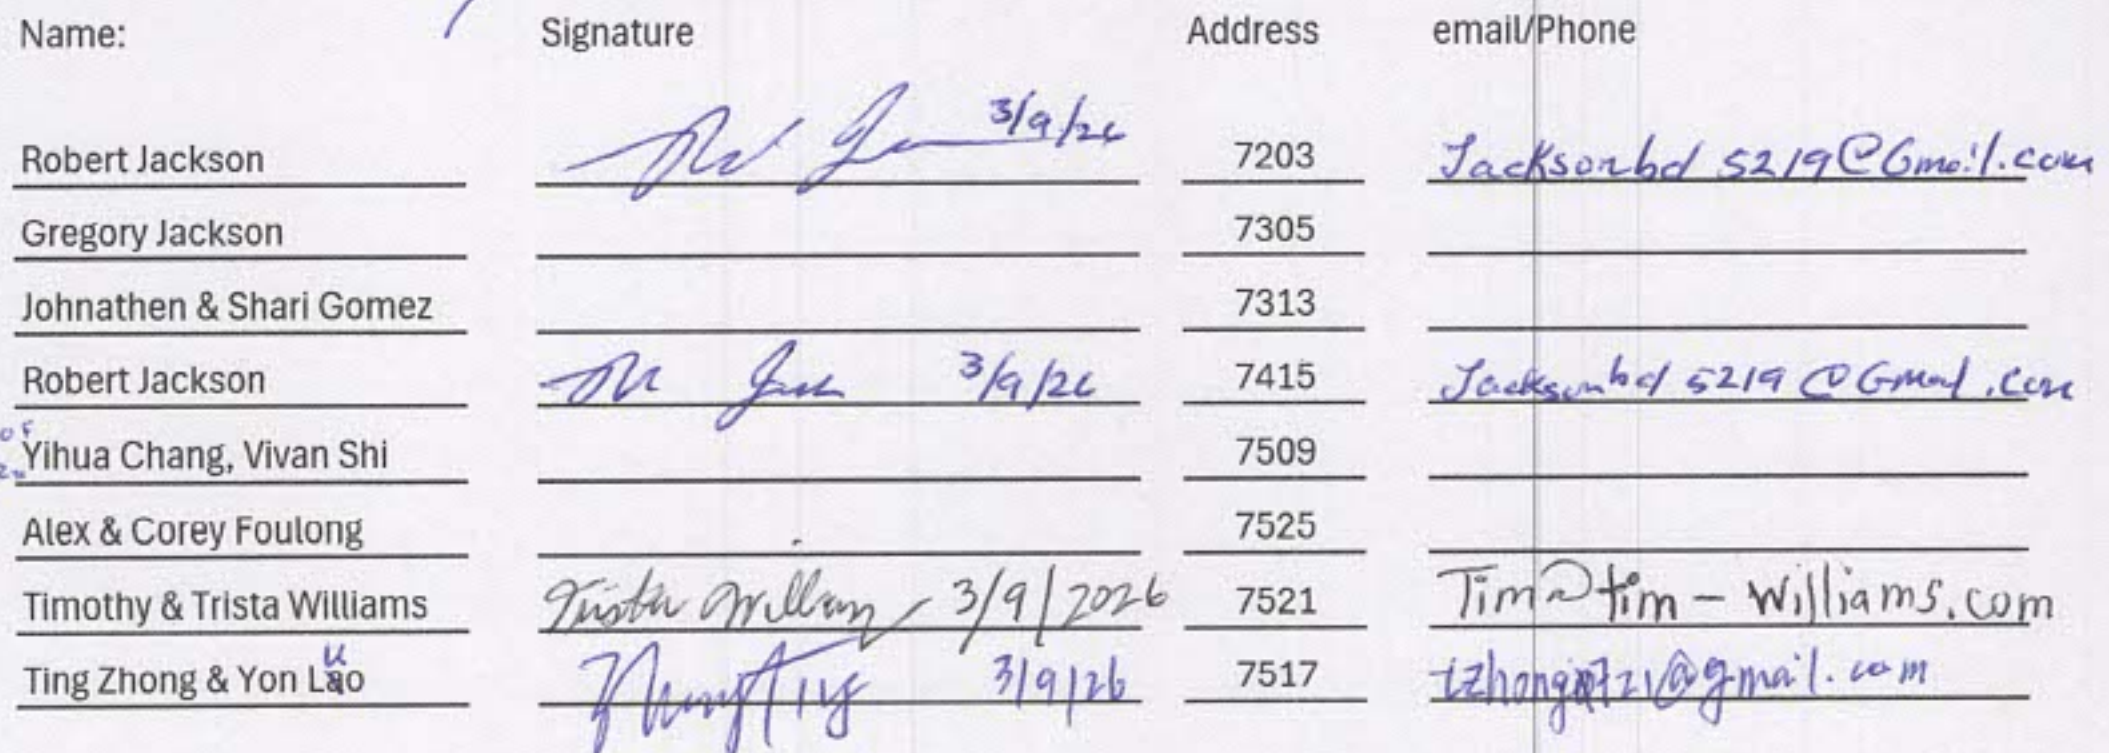 Name: Signature Address email/Phone
Robert Jackson 3/9/26 7203 Jacksonbd5219@Gmail.com
Gregory Jackson 7305
Johnathen & Shari Gomez 7313
Robert Jackson 3/9/26 7415 Jacksonbd5219@Gmail.com
Yihua Chang, Vivan Shi 7509
Alex & Corey Foulong 7525
Timothy & Trista Williams Trista Williams 3/9/2026 7521 Tim@tim-williams.com
u
Ting Zhong & Yon Lao 3/9/26 7517